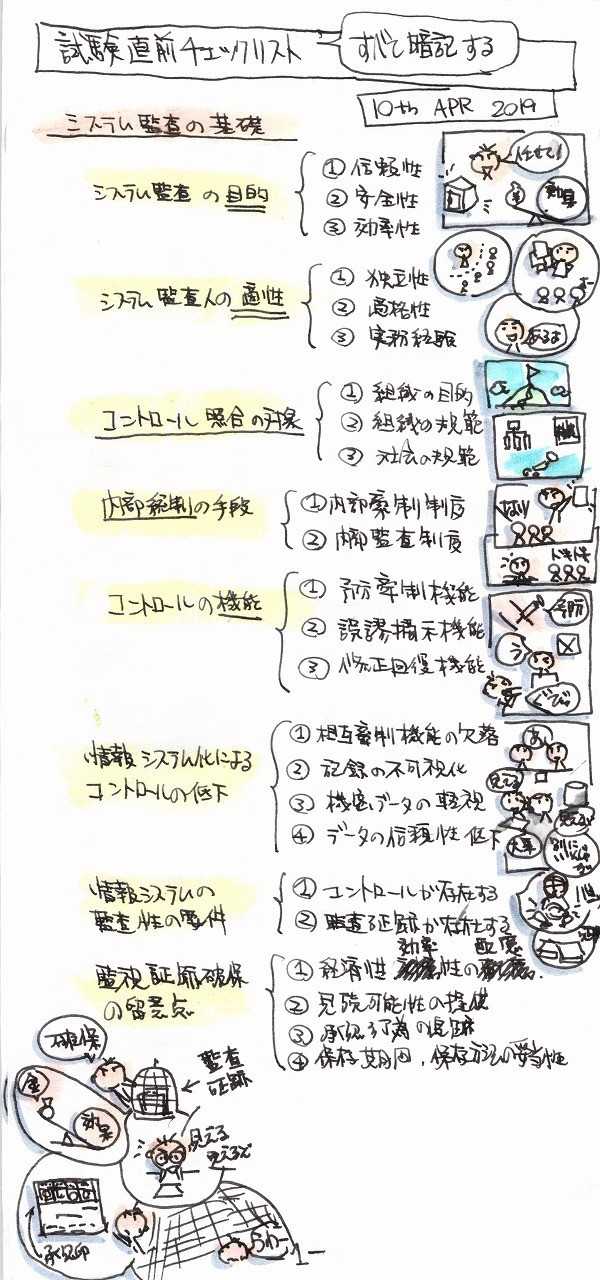 試験直前チェックリスト
すべて暗記する
10th APR 2019
システム監査の基礎
システム監査の目的
① 信頼性
② 安全性
③ 効率性
任せて!
効果
システム監査人の適性
① 独立性
② 適格性
③ 実務経験
あるよ
コントロール照合の対象
① 組織の目的
② 組織の規範
③ 社会の規範
内部統制の手段
① 内部牽制制度
② 内部監査制度
ドキドキ
コントロールの機能
① 予防牽制機能
② 誤謬摘示機能
③ 修正回復機能
予防
情報システム化による
コントロールの低下
① 相互牽制機能の欠落
② 記録の不可視化
③ 機密データの軽視
④ データの信頼性低下
見える
見えない
大事
情報システムの
監査性の要件
① コントロールが存在する
② 監査証跡が存在する
監視証跡確保
の留意点
効率 配慮
① 経済性 性の
② 見読可能性の提供
③ 承認行為の追跡
④ 保存期間、保存方法の妥当性
確保
監査
証跡
量
効果
見える
見えるぞ
承認印
うわー